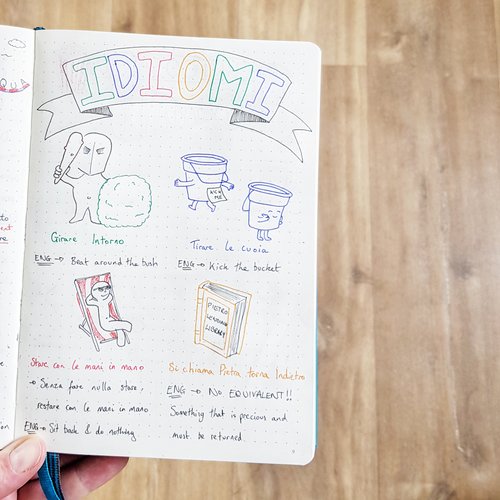 IDIOMI
KICK ME
Girare Intorno
ENG → Beat around the bush
Tirare le cuoia
ENG → Kick the bucket
PIETRO
LENDING
LIBRARY
Stare con le mani in mano
→ Senza fare nulla stare,
restare con le mani in mano
ENG → Sit back & do nothing
Si chiama Pietro, torna Indietro
ENG → NO EQUIVALENT!!
Something that is precious and
must be returned